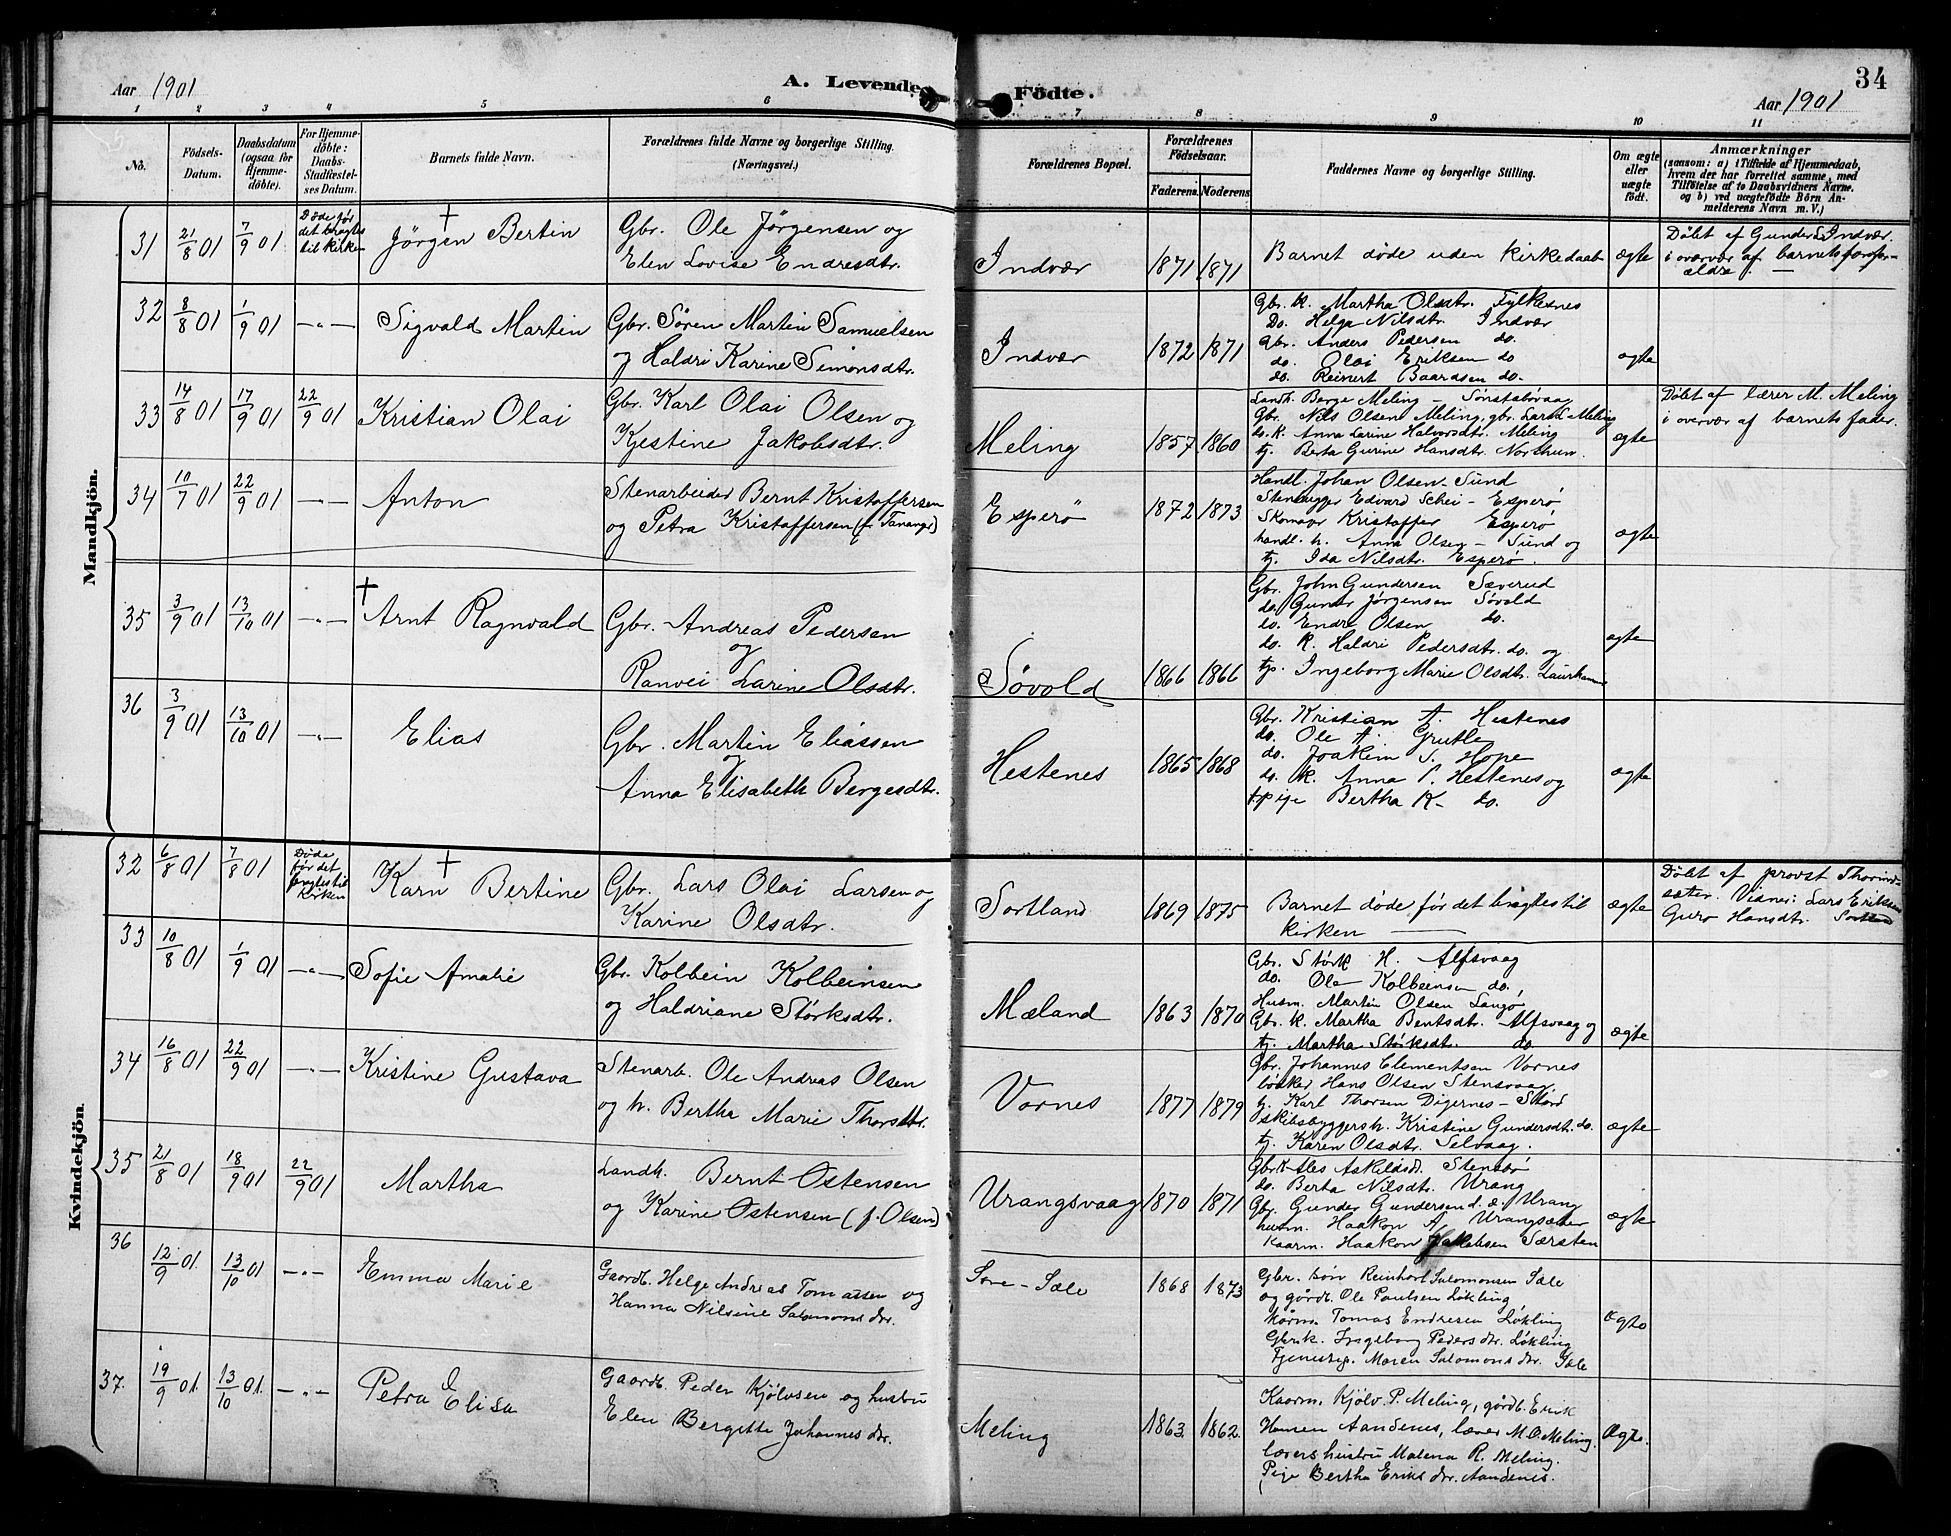 Aar 1901
A. Levende
Födte.
34
Aar 1901
1 2 3 4 5 6 7 8 9 10 11
No.
Födsels-Datum.
Daabsdatum (ogsaa for Hjemmedöbte).
For Hjemmedöbte: Daabs-Stadfæstelses Datum.
Barnets fulde Navn.
Forældrenes fulde Navne og borgerlige Stilling.
(Næringsvei.)
Forældrenes Bopæl.
Forældrenes Födselsaar.
Faderens. Moderens.
Faddernes Navne og borgerlige Stilling.
Om ægte eller uægte födt.
Anmærkninger
(saasom: a) i Tilfælde af Hjemmedaab,
hvem der har forrettet samme, med
Tilföielse af to Daabsvidners Navne.
og b) ved uægtefödte Börn An-
melderens Navn m. V.)
Mandkjön.
31 21/8 01 7/9 01 Döde før det bragtes til kirken
† Jörgen Bertin
Gbr. Ole Jörgensen og
Elen Lovise Endresdtr.
Indvær 1871 1871
Barnet døde uden kirkedaab
ægte
Døbt af Gunder Indvær
i overvær af barnets foræ-
ldre. —
32 8/8 01 1/9 01 —"—
Sigvald Martin
Gbr. Sören Martin Samuelsen
og Haldri Karine Simonsdtr.
Indvær 1872 1871
Gbr. k. Martha Olsdtr. Fylkesnes
Do. Helga Nilsdtr. Indvær
Gbr. Anders Pedersen do.
do. Olai Eriksen do
do. Reinert Baardsen do.
ægte
33 14/8 01 17/9 01 22/9 01
Kristian Olai
Gbr. Karl Olai Olsen og
Kjestine Jakobsdtr.
Meling 1857 1860
Landh. Berge Meling –
Gbr. Nils Olsen Meling, gbr. Lars L. Meling
do. k. Anna Larine Halvorsdtr. Meling
tj. Berta Gurine Hansdtr.
ægte
Døbt af lærer M. Meling
i overvær af barnets fader.
34 10/7 01 22/9 01 —"—
Anton
Stenarbeider Bernt Kristaffersen
og Petra Kristaffersen
Esperø 1872 1873
Handl. Johan Olsen – Sund
Edvard Schei – Esperø
Kristaffer Esperø
handl. h. Anna Olsen – Sund og
tj. Ida Nilsdtr. Esperø.
ægte
35 3/9 01 13/10 01 —"—
† Arnt Ragnvald
Gbr. Andreas Pedersen
og
Ranvei Larine Olsdtr.
Søvold 1866 1866
Gbr. John Gundersen Sæverud
do. Gunder Jørgensen Søvold
do. Endre Olsen do.
do. k. Haldri Pedersdtr. do. og
tjp. Ingeborg Marie Olsdtr.
ægte
36 3/9 01 13/10 01 —"—
Elias
Gbr. Martin Eliassen
og
Anna Elisabeth Bergesdtr.
Hestenes 1865 1868
Gbr. Kristian A. Hestenes
do. Ole A. Grutle
do. Joakim J. Hope
do. k. Anna P. Hestenes og
tpige Bertha K– do.
ægte
Kvindekjön.
32 6/8 01 7/8 01 Døde før det bragtes til kirken
† Karn Bertine
Gbr. Lars Olai Larsen og
Karine Olsdtr.
Sortland 1869 1875
Barnet døde før det bragtes til
kirken —
ægte
Døbt af provst Thorind-
sæter. Vidner: Lars Eriksen
Guro Hansdtr. Sortland
33 10/8 01 1/9 01 —"—
Sofie Amalie
Gbr. Kolbein Kolbeinsen
og Haldriane Størksdtr.
Mæland 1863 1870
Gbr. Størk H. Alfsvaag
do. Ole Kolbeinsen do.
Husm. Martin Olsen Langø
Gbr. k. Martha Bentsdtr. Alfsvaag og
tj. Martha Størksdtr. do.
ægte
34 16/8 01 22/9 01 —"—
Kristine Gustava
Stenarb. Ole Andreas Olsen
og h. Bertha Marie Thorsdtr.
Vornes 1877 1879
Gbr. Johannes Clementsen Vornes
bøkker Hans Olsen Stensvaag
tj. Karl Thorsen Digernes – Stord
skibsbyggersh. Kristine Gundersdt. do.
tj. Karen Olsdtr. Selvaag.
ægte
35 21/8 01 18/9 01 22/9 01
Martha
Landh. Bernt Østensen
og Karine Østensen (f. Olsen)
Urangsvaag 1870 1871
Gbr. k. Ales Askildsd. Stensbø
do. Berta Nilsdtr. Urang
Gbr. Gunder Gundersen d. æ. Urang
husm. Haakon A. Urangsæter
kaarm. Haakon Jakobsen Særsten
ægte
36 12/9 01. 13/10 01 —"—
Emma Marie
Gaardb. Helge Andreas Tomassen og
Hanna Nilsine Salomons dtr.
Søre – Sæle 1868 1873
Gbr. søn Reinhart Salomonsen Sæle
og gårdb. Ole Paulsen Løkling
kårm. Tomas Endresen Løkling
Gbrik. Ingeborg Peders dtr. Løkling
Tjenestep. Maren Salomons dtr. Sæle
Ægte
37. 19/9 01. 13/10 01. —"—
Petra Elisa
Gaardb. Peder Kjölvsen og hustru
Elen Bergitte Johannes dtr.
Meling 1863. 1862.
Kaarm. Kjölv P. Meling, gårdb. Erik
Hansen Aandenes, lærer M. O. Meling.
lærers hustru Malena R. Meling.
Pige Bertha Eriks dtr. Aandenes.
Ægte.